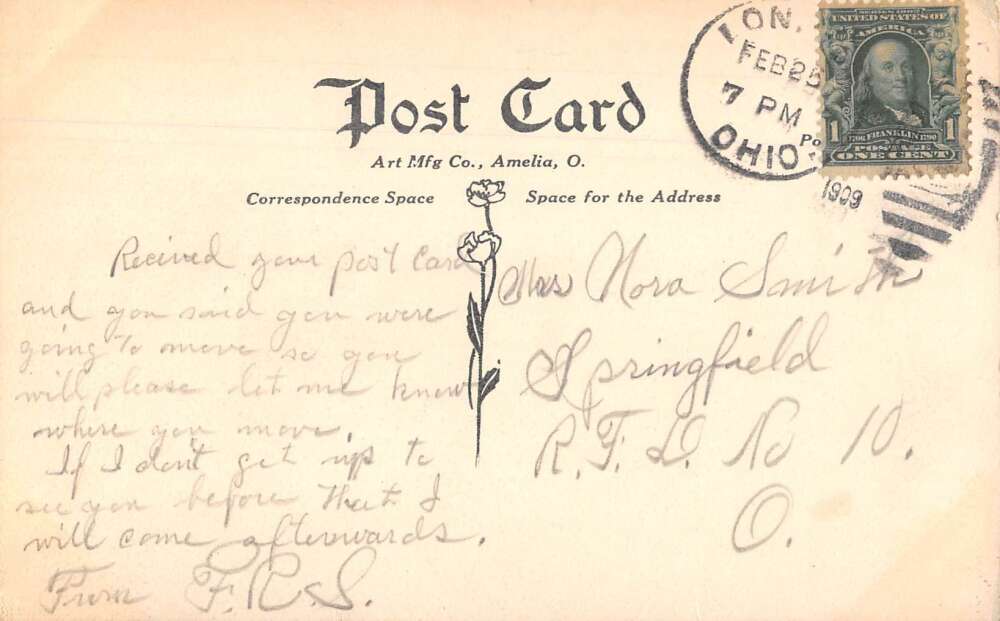 Post Card
Art Mfg Co., Amelia, O.
Correspondence Space
Space for the Address
LON.
FEB 25
7 PM
OHIO
1909
Po
SERIES 1902
UNITED STATES OF
AMERICA
1 1706 FRANKLIN 1790 1
POSTAGE
ONE CENT
Recieved your post Card
and you said you were
going to move so you
will please let me know
where you move.
If I don't get up to
see you before that I
will come afterwards.
From F.R.S.
Mrs Nora Smith
Springfield
R.F.D. No 10.
O.